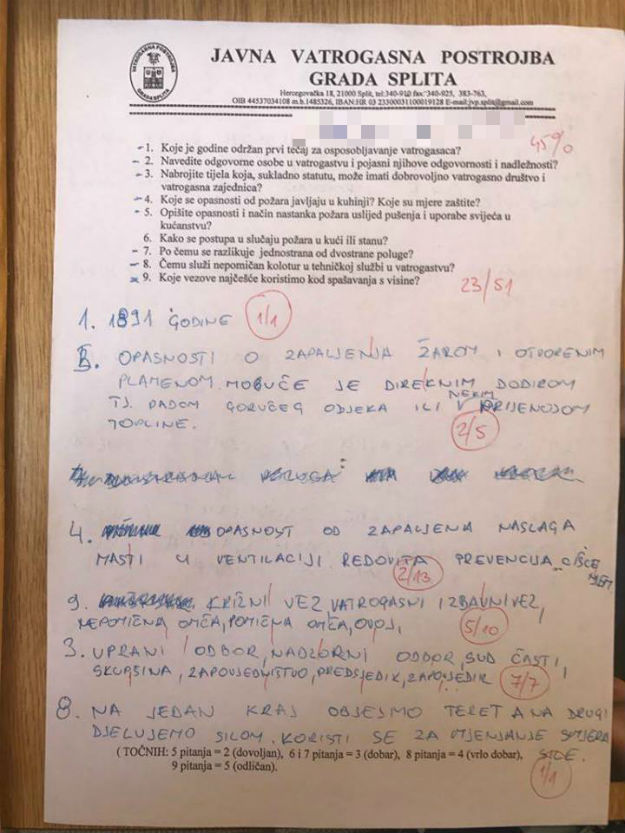 VATROGASNA POSTROJBA
GRADA SPLITA
JAVNA VATROGASNA POSTROJBA
GRADA SPLITA
Hercegovačka 18, 21000 Split, tel:340-910 fax:340-925, 383-763,
OIB 44537034108 m.b.1485326, IBAN:HR 03 23300031100019128 E-mail:jvp.split@gmail.com
45%
1. Koje je godine održan prvi tečaj za osposobljavanje vatrogasaca?
2. Navedite odgovorne osobe u vatrogastvu i pojasni njihove odgovornosti i nadležnosti?
3. Nabrojite tijela koja, sukladno statutu, može imati dobrovoljno vatrogasno društvo i
vatrogasna zajednica?
4. Koje se opasnosti od požara javljaju u kuhinji? Koje su mjere zaštite?
5. Opišite opasnosti i način nastanka požara uslijed pušenja i uporabe svijeća u
kućanstvu?
6. Kako se postupa u slučaju požara u kući ili stanu?
7. Po čemu se razlikuje jednostrana od dvostrane poluge?
8. Čemu služi nepomičan kolotur u tehničkoj službi u vatrogastvu?
9. Koje vezove najčešće koristimo kod spašavanja s visine?
23/51
1. 1891 GODINE 1/1
5. OPASNOSTI O ZAPALJENJA ŽAROM I OTVORENIM
PLAMENOM MOGUĆE JE DIREKNIM DODIROM
NEKIM
TJ. PADOM GORUĆEG ODJEKA ILI V PRIJENOJOM
TOPLINE. 2/5
4. OPASNOST OD ZAPALJENA NASLAGA
MASTI U VENTILACIJI REDOVITA PREVENCIJA
2/13
9. KRIŽNI VEZ, VATROGASNI IZBAVNI VEZ,
NEPOMIČNA OMČA, POMIČNA OMČA, OVOJ, 5/10
3. UPRANI ODBOR, NADZORNI ODBOR, SUD ČASTI,
SKUPŠINA, ZAPOVJEDNIŠTVO, PREDSJEDIK, ZAPOVJEDIK 7/7
8. NA JEDAN KRAJ OBJESMO TERET A NA DRUGI
DJELUJEMO SILOM. KORISTI SE ZA MJENJANJE SMJERA
SILE.
( TOČNIH: 5 pitanja = 2 (dovoljan), 6 i 7 pitanja = 3 (dobar), 8 pitanja = 4 (vrlo dobar),
9 pitanja = 5 (odličan).
1/1